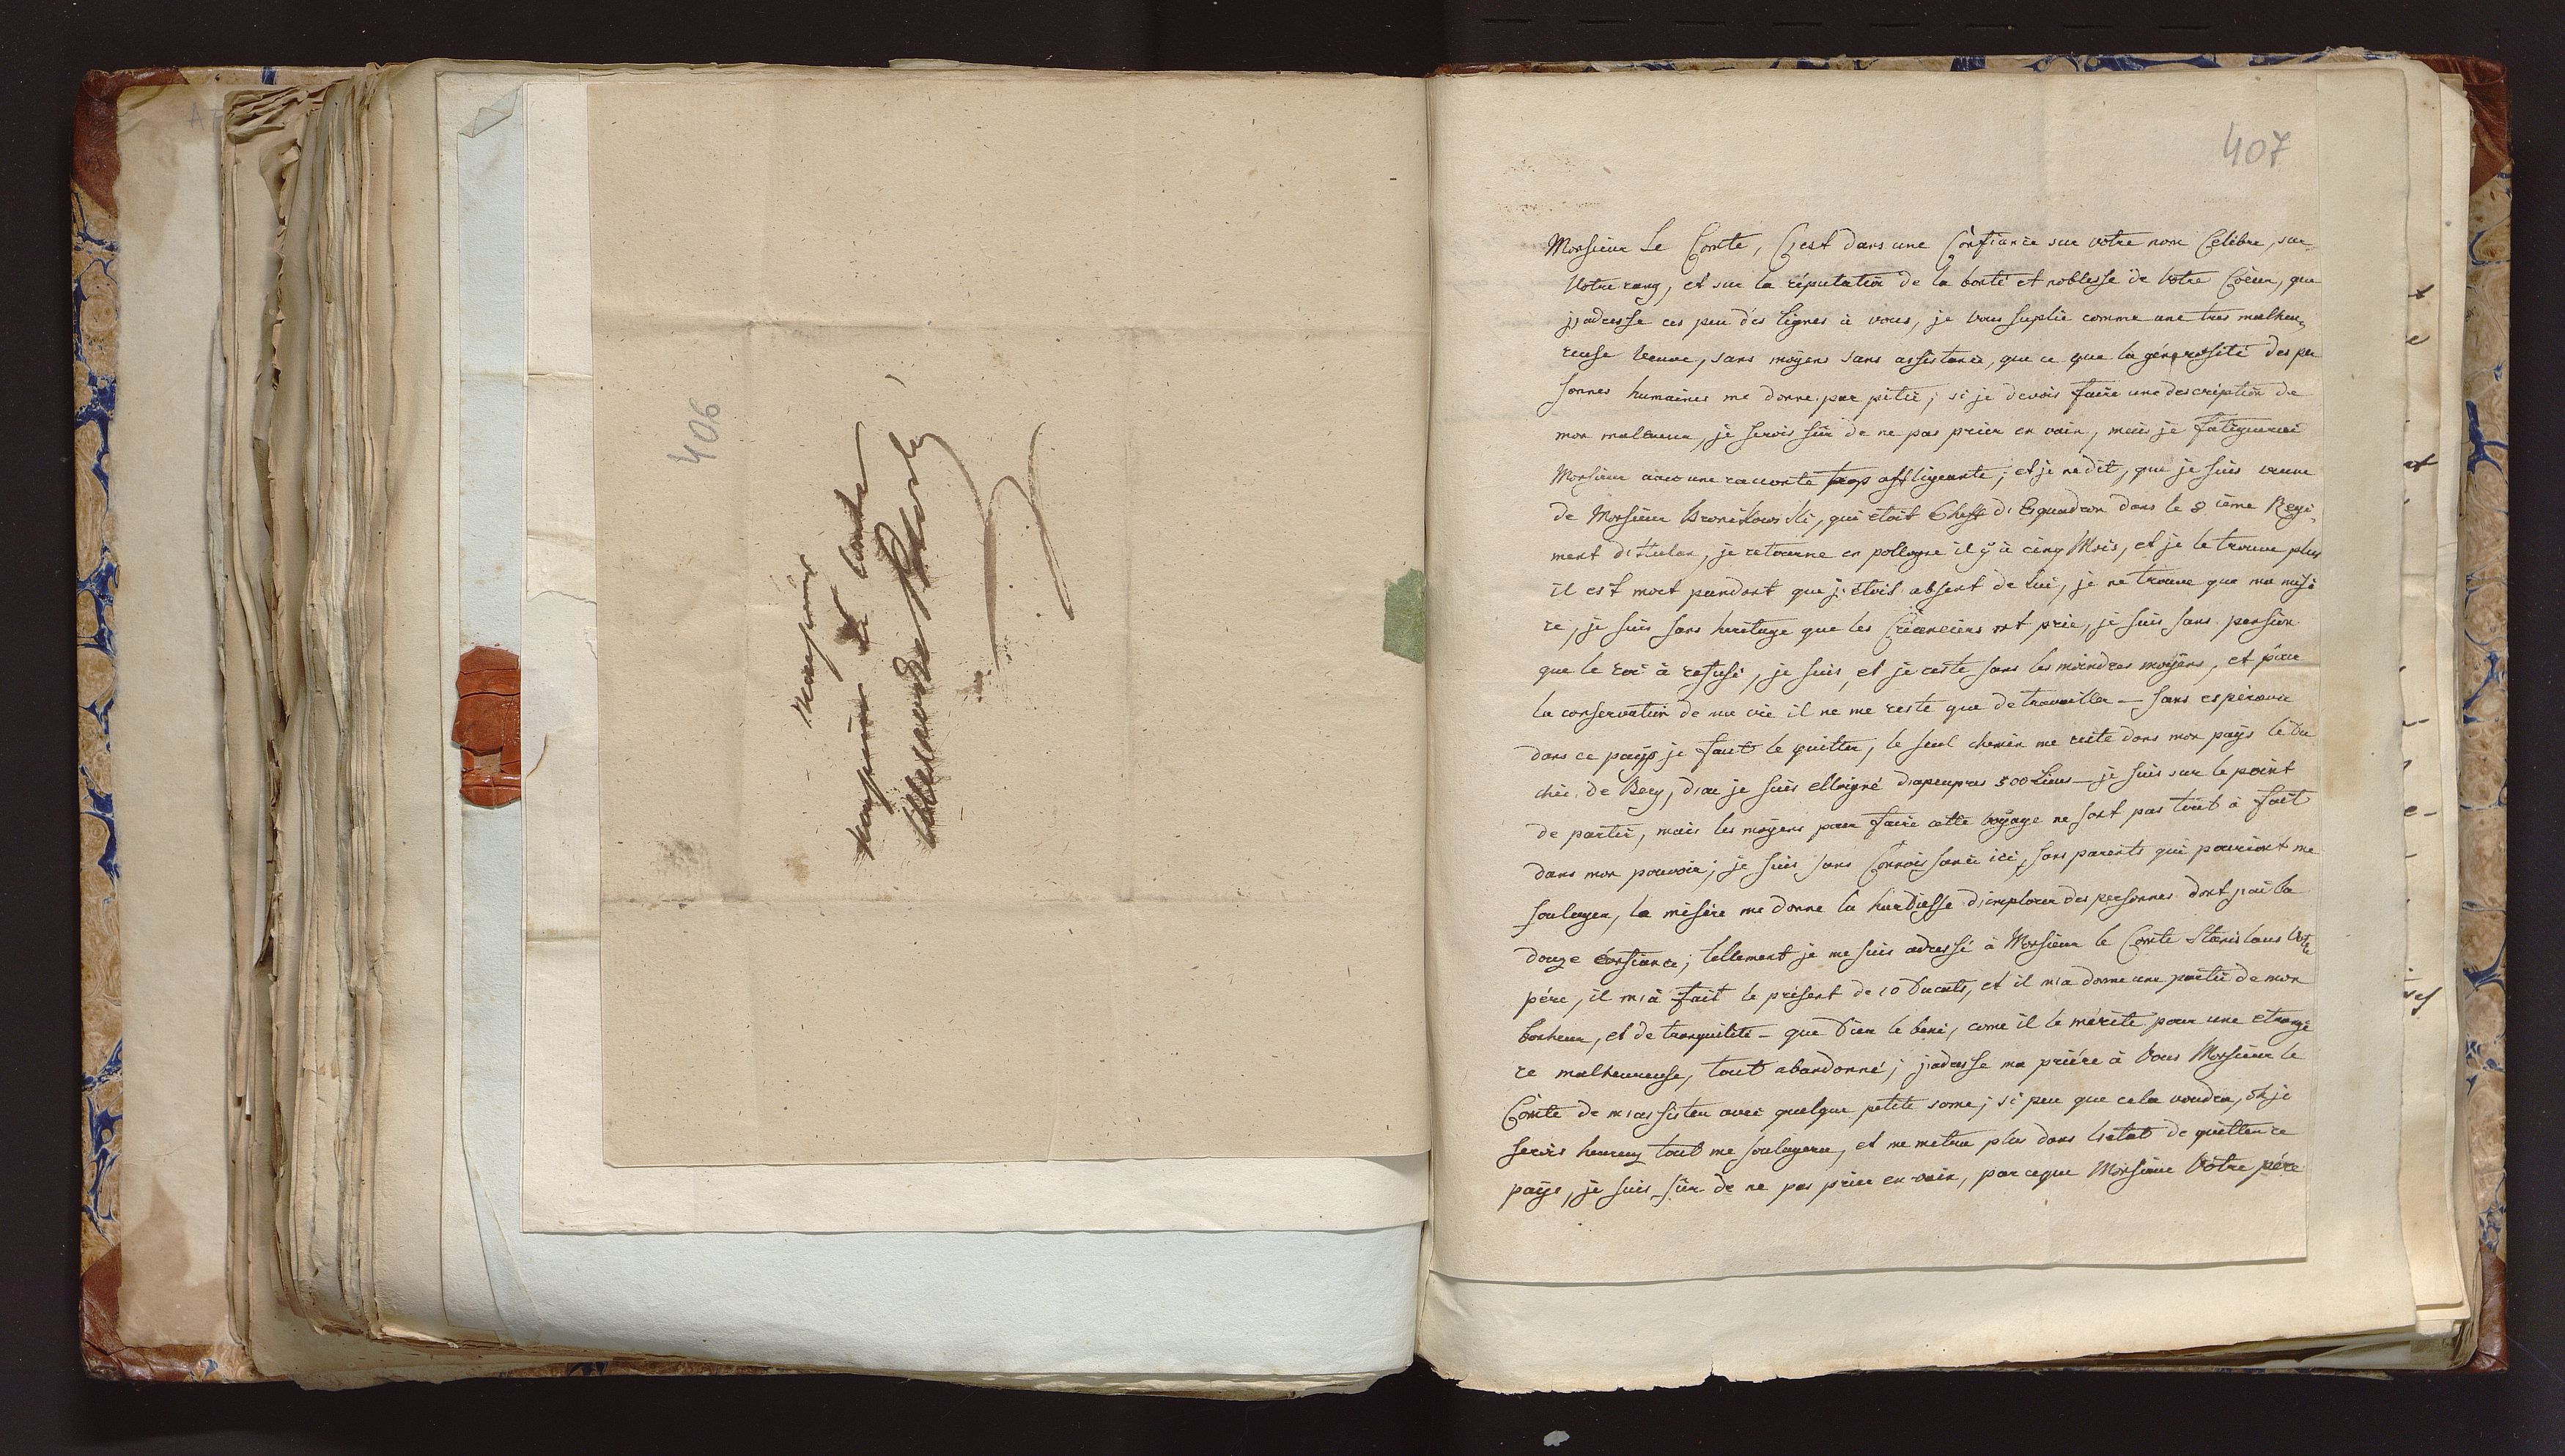 406
Monsieur
Monsieur le Comte
Alexandre Potocki
407
Monsieur Le Comte, C'est dans une Confiance sur votre nom Celèbre, sur
Votre rang, et sur la réputation de la bonté et noblesse de Votre Coèur, que
j'adresse ces peu des lignes à vous, je vous suplie comme une tres malheu„
reuse veuve, sans moÿens sans assistance, que ce que la générosité des per
sonnes humaines me donne par pitié; si je devois faire une description de
mon malheur, je serois sûr de ne pas prier en vain, mais je fatiguerai
Monsieur avec une raconte trop affligeante; et je ne dit, que je suis veuve
de Monsieur Bronikowski, qui étoit Cheff d'Esquadron dans le 8 ième Regi„
ment d'Hulan, je retourne en pollogne il ÿ à cinq Mois, et je le trouve plus
il est mort pendant que j'étois absent de Lui, je ne trouve que ma misè
re, je suis sans heritage que les Créanciers ont prie, je suis sans pension
que le roi à refusé, je suis, et je reste sans les moindres moÿens, et pour
la conservation de ma vie il ne me reste que de travailler — sans espérance
dans ce paÿs je faut le quitter, le seul chemin me reste dans mon paÿs le Du
ché de Berg, d'ou je suis elloigné dapeupres 300 Lieus — je suis sur le point
de partir, mais les moÿens pour faire cette voÿage ne sont pas tout à fait
dans mon pouvoir; je suis sans Connoissance ici, sans parents qui pouroint me
soulager, la misère me donne la hardiesse d'implorer des personnes dont j'ai la
douze confiance; tellement je me suis adressé à Monsieur le Comte Stanislaus Votre
père, il m'à fait le présent de 10 Ducats, et il m'a donne une partie de mon
bonheur, et de tranquilité — que Dieu le beni, come il le mérite pour une etrangè
re malheureuse, tout abandonné; j'adresse ma prière à Vous Monsieur le
Comte de m'assister avec quelque petite some; si peu que cela voudra, et je
serois heureux tout me soulagera, et me metera plus dans l'état de quitter ce
paÿs, je suis sûr de ne pas prier en vain, parceque Monsieur Vôtre père